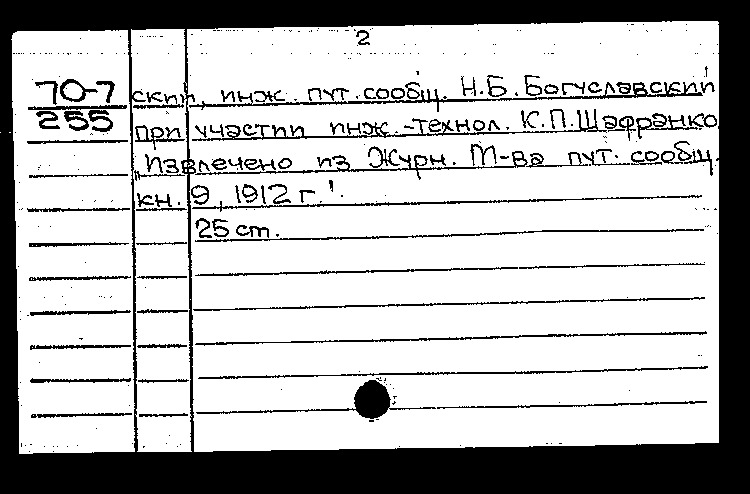 2
70-7
255
ский, инж. пут. сообщ. Н.Б. Богуславский
при участии инж.-технол. К.П. Шафранко
„Извлечено из Журн. М-ва пут. сообщ.
кн. 9, 1912 г.'.
25 cm.